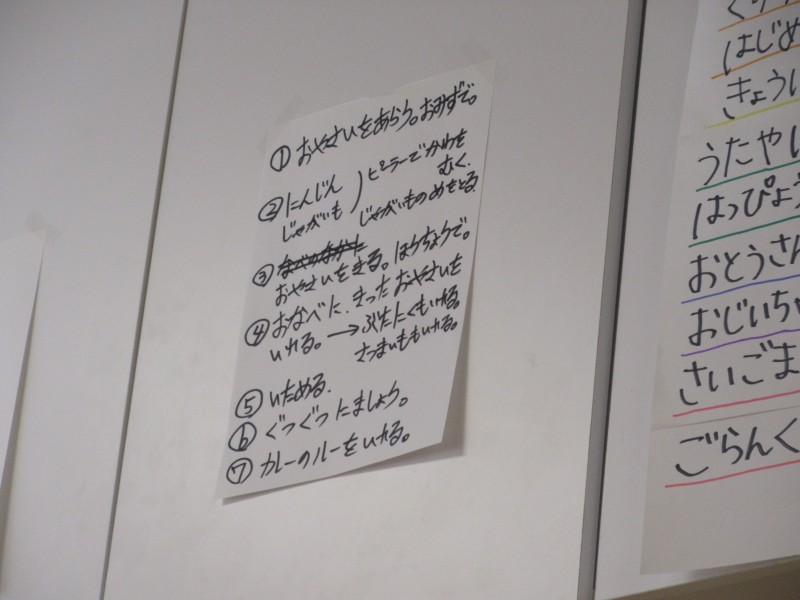 ①おやさいをあらう。おみずで。
②にんじん
じゃがいも
ピーラーでかわを
むく。
じゃがいものめをとる。
③
おやさいをきる。ほうちょうで。
④おなべに、きったおやさいを
いれる。→ぶたにくもいれる。
さつまいももいれる。
⑤いためる。
⑥ぐつぐつにましょう。
⑦カレーのルーをいれる。
はじめ
きょう
うたやい
はっぴょう
おとうさん
おじいち
さいごま
ごらんく